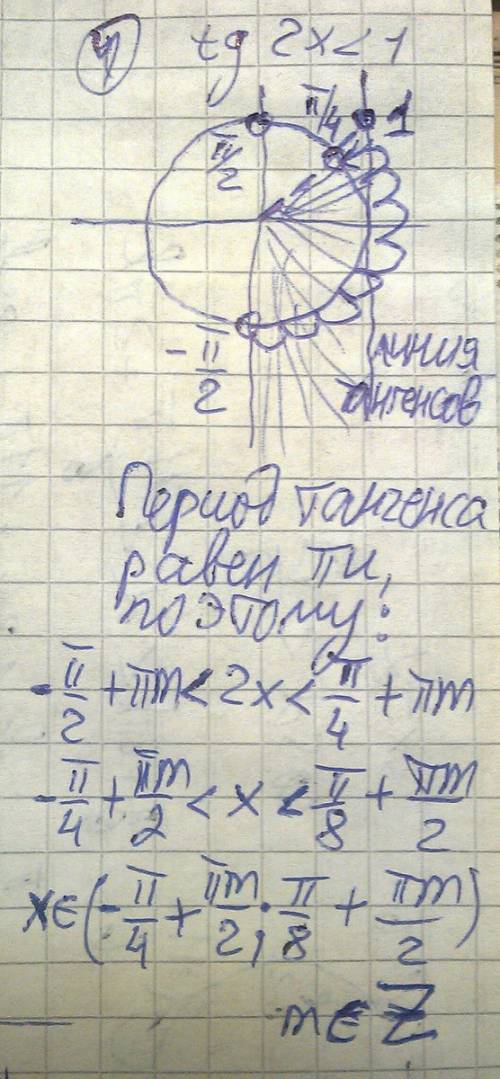 4 tg 2x < 1
π/4 1
π/2
-π/2 линия
тангенсов
Период тангенса
равен пи,
поэтому:
-π/2 + πm < 2x < π/4 + πm
-π/4 + πm/2 < x < π/8 + πm/2
x∈(-π/4 + πm/2; π/8 + πm/2)
m∈Z